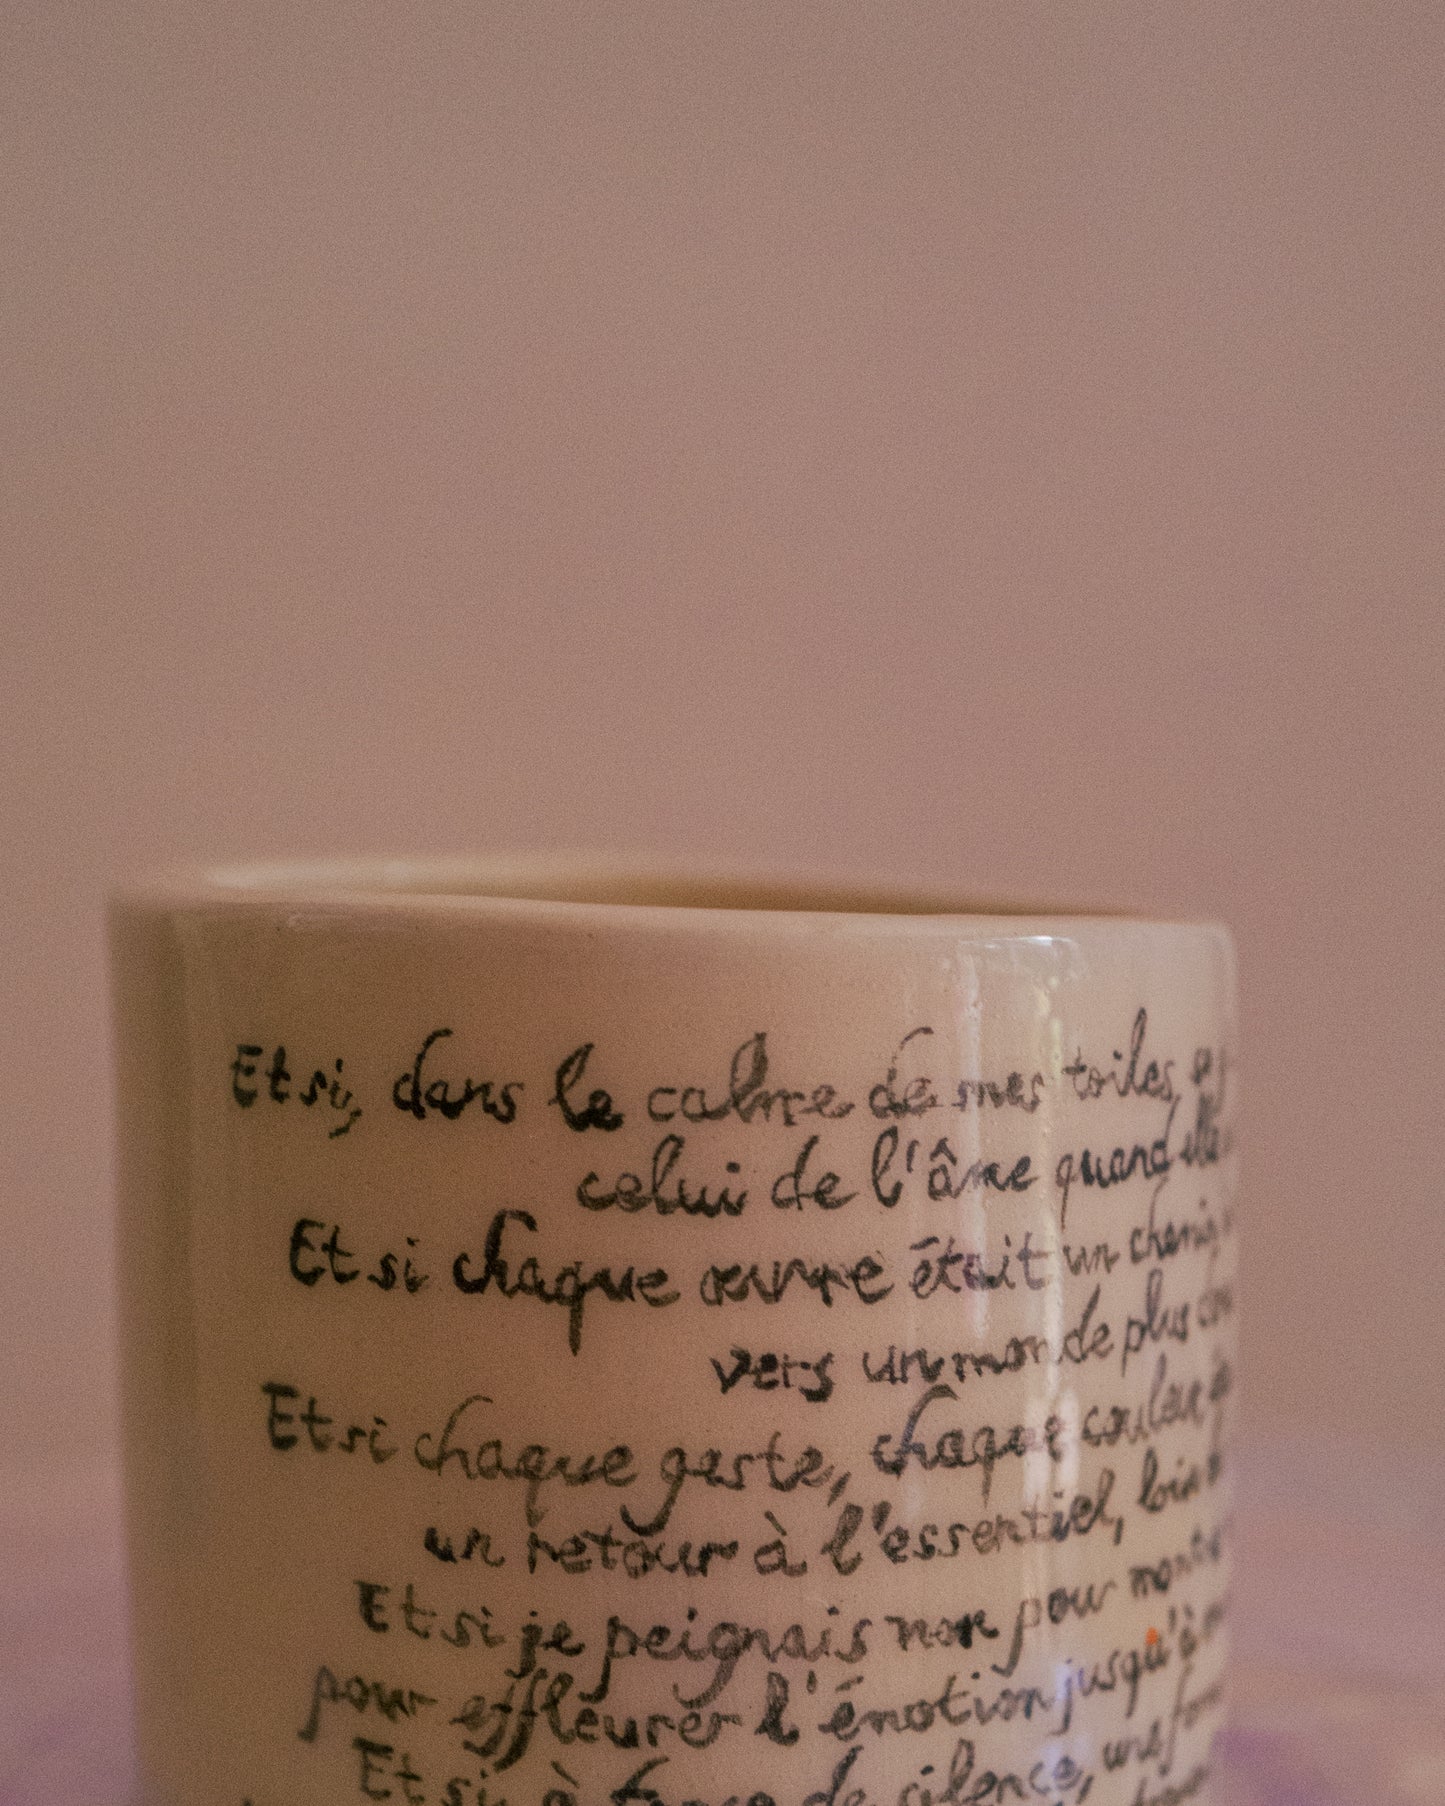 Et si, dans le calme de mes toiles, se
celui de l'âme quand elle
Et si chaque œuvre était un chemin
vers un monde plus
Et si chaque geste, chaque couleur
un retour à l'essentiel, loin
Et si je peignais non pour montrer
pour effleurer l'émotion jusqu'à
Et si, à force de silence, une